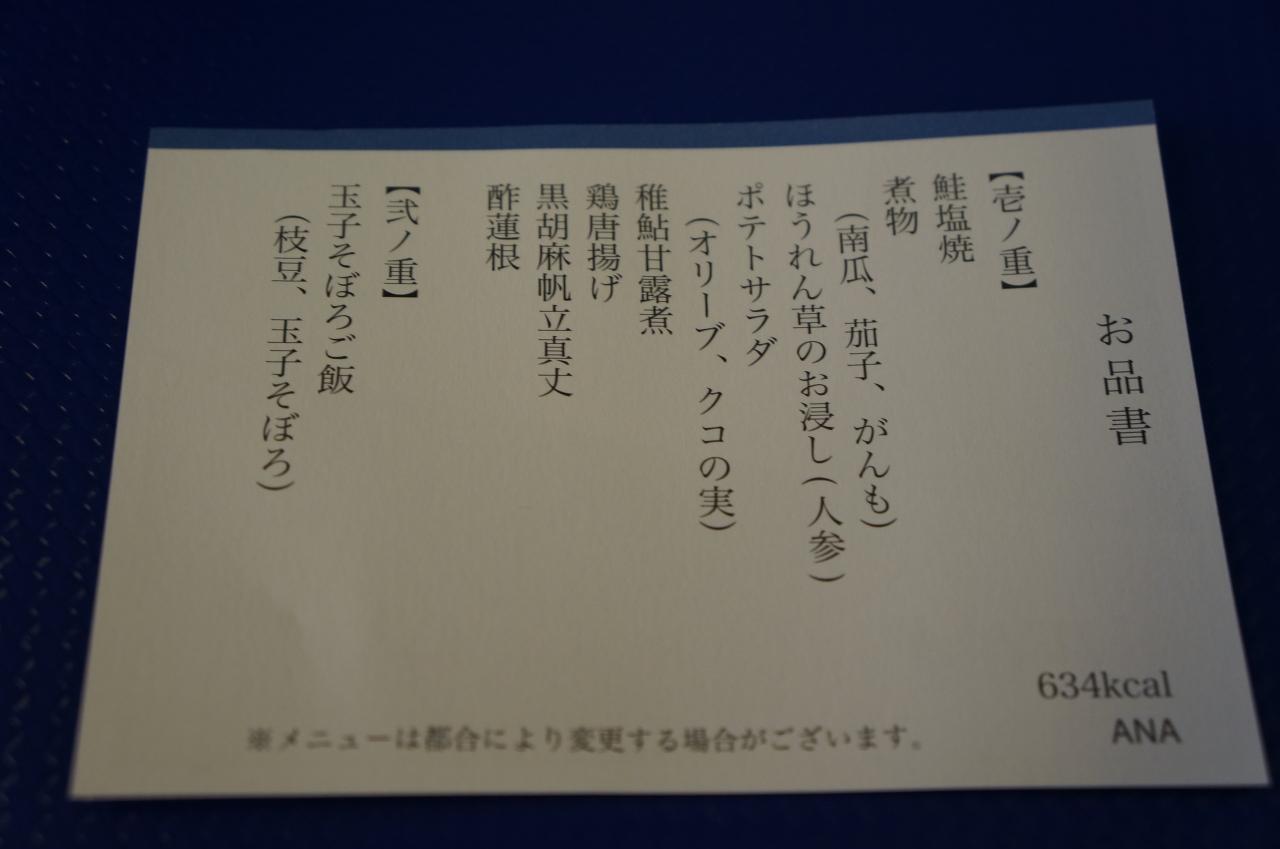 お品書
【壱ノ重】
鮭塩焼
煮物
(南瓜、茄子、がんも)
ほうれん草のお浸し(人参)
ポテトサラダ
(オリーブ、クコの実)
稚鮎甘露煮
鶏唐揚げ
黒胡麻帆立真丈
酢蓮根
【弐ノ重】
玉子そぼろご飯
(枝豆、玉子そぼろ)
634kcal
ANA
※メニューは都合により変更する場合がございます。